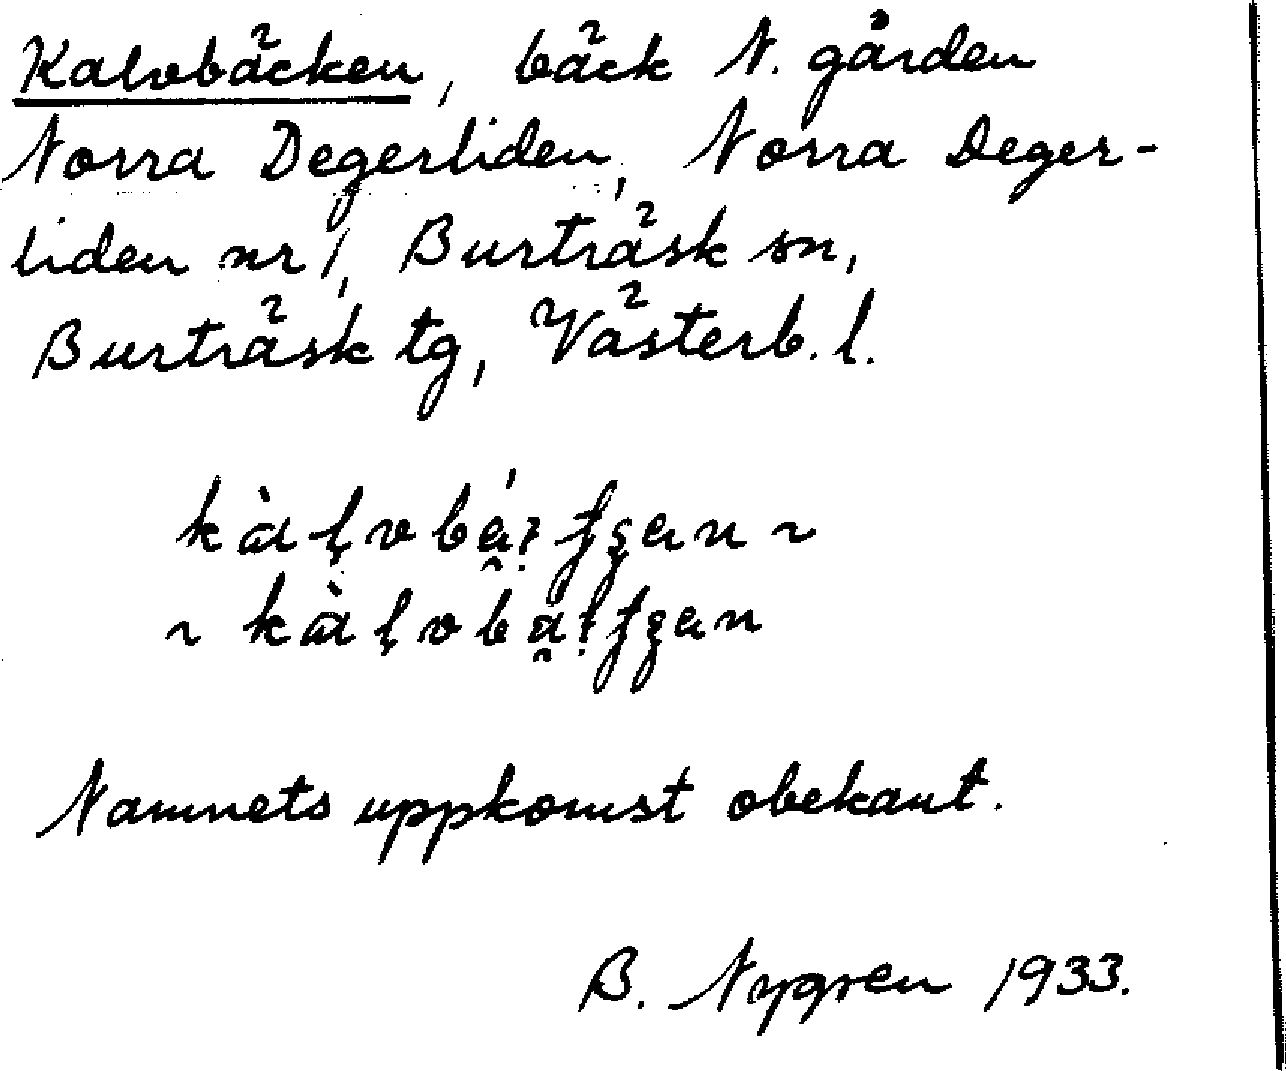 Kalvbäcken, bäck N. gården
Norra Degerliden, Norra Deger-
liden nr 1, Burträsk sn,
Burträsk tg, Västerb. l.
Namnets uppkomst obekant.
B. Nygren 1933.